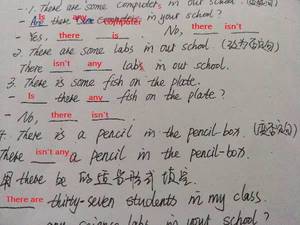 1. There are some computers in our school.
Is there any computer in your school?
- Yes, there is No, there isn't.
2. There are some labs in our school. (改为否定句)
There isn't any labs in our school.
3. There is some fish on the plate.
- Is there any fish on the plate?
- No, there isn't.
4. There is a pencil in the pencil-box. (否定句)
There isn't any a pencil in the pencil-box.
用 there be 的适当形式填空
There are thirty-seven students in my class.
any science labs in your school?